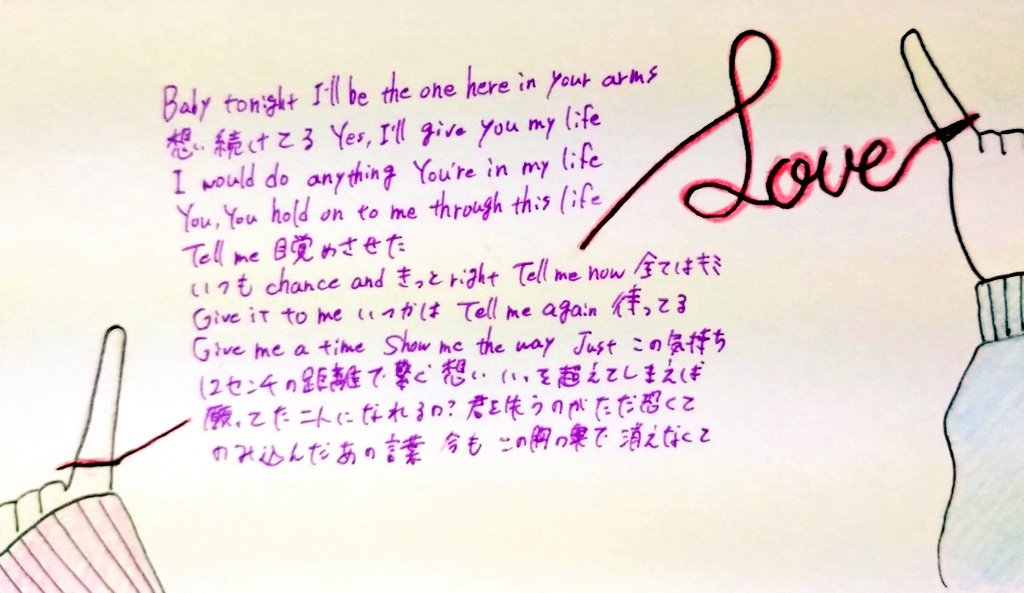 Baby tonight I'll be the one here in your arms
想い続けてる Yes, I'll give you my life
I would do anything You're in my life
You, You hold on to me through this life
Tell me 目覚めさせた
いつも chance and きっと right Tell me now 全てはキミ
Give it to me いつかは Tell me again 待ってる
Give me a time Show me the way Just この気持ち
12センチの距離で繋ぐ想い いいを超えてしまえば
願ってた二人になれるの? 君を失うのがただ恐くて
のみ込んだあの言葉 今も この胸の奥で 消えなくて
Love